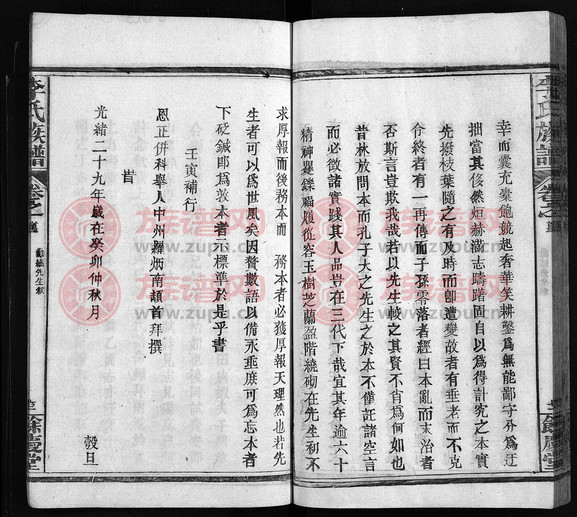 幸而囊充橐飽競起奢華笑耕鑿爲無能鄙字分爲迂
拙當其侈然烜赫滿志躊躇固自以爲得計究之本實
先撥枝葉隨之有及時而卽遭變故者有垂老而不克
令終者有一再傳而子孫零落者經曰本亂而末治者
否斯言豈欺我哉若以先生較之其賢不肖爲何如也
昔林放問本而孔子大之先生之於本不僅託諸空言
而必徵諸實踐其人品豈在三代下哉宜其年逾六十
精神矍鑠福履從容玉樹芝蘭盈階繞砌在先生初不
求厚報而後務本而務本者必獲厚報天理然也若先
生者可以爲世風矣因贅數語以備永垂庶可爲忘本者
下砭鍼卽爲敦本者示標準於是乎書
壬寅補行
恩正併科舉人中州羅炳南頓首拜撰
旹
光緒二十九年歲在癸卯仲秋月
穀旦
李氏族譜
卷之一
餘慶堂
李氏族譜
卷之一
餘慶堂
族谱网
www.zupu.cn